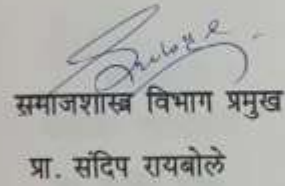 समाजशास्त्र विभाग प्रमुख
प्रा. संदिप रायबोले